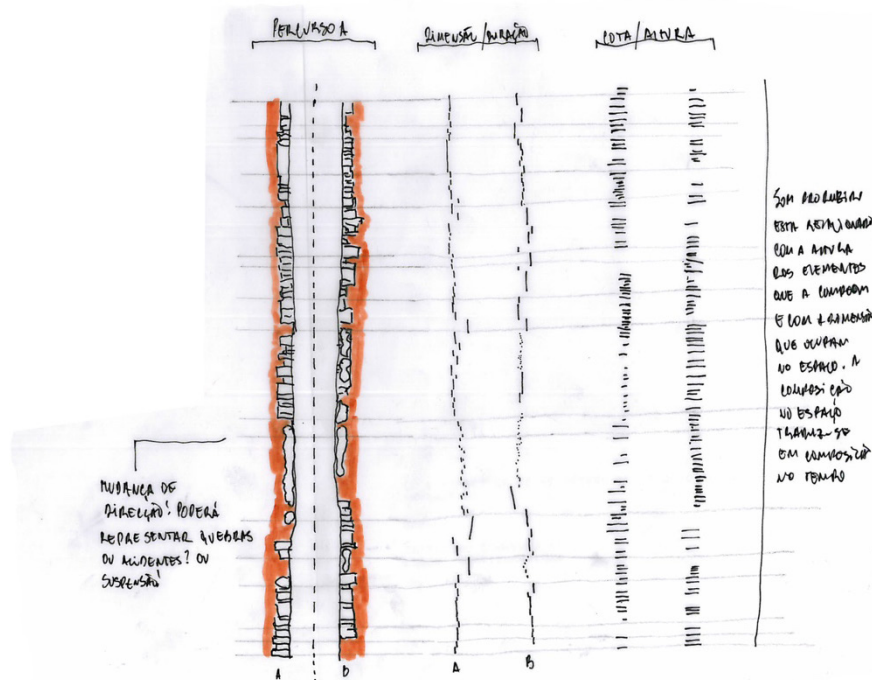 PERCURSO A
DIMENSÃO/DURAÇÃO
COTA/ALTURA
SOM PRODUZIDO
ESTÁ RELACIONADO
COM A ALTURA
DOS ELEMENTOS
QUE A COMPOEM
E COM A DIMENSÃO
QUE OCUPAM
NO ESPAÇO. A
COMPOSIÇÃO
NO ESPAÇO
TRADUZ-SE
EM COMPOSIÇÃO
NO TEMPO
MUDANÇA DE
DIRECÇÃO! PODERÁ
REPRESENTAR QUEBRAS
OU ACIDENTES? OU
SUSPENSÃO!
A
B
A
B